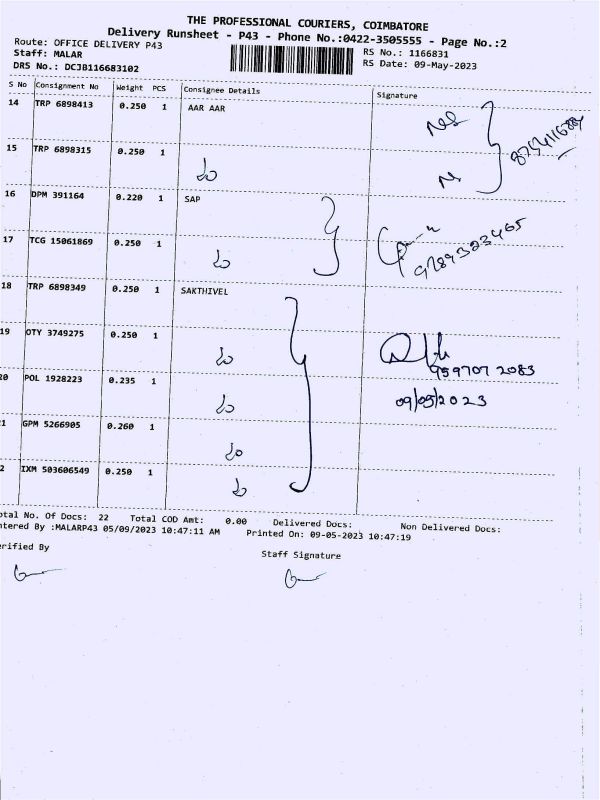 THE PROFESSIONAL COURIERS, COIMBATORE
Delivery Runsheet - P43 - Phone No.:0422-3505555 - Page No.:2
Route: OFFICE DELIVERY P43
Staff: MALAR
RS No.: 1166831
DRS No.: DCJB116683102
RS Date: 09-May-2023
S No Consignment No Weight PCS Consignee Details Signature
14 TRP 6898413 0.250 1 AAR AAR
15 TRP 6898315 0.250 1
16 DPM 391164 0.220 1 SAP
17 TCG 15061869 0.250 1
9789323465
18 TRP 6898349 0.250 1 SAKTHIVEL
19 OTY 3749275 0.250 1
959707 2083
20 POL 1928223 0.235 1
09/05/2023
1 GPM 5266905 0.260 1
2 IXM 503606549 0.250 1
otal No. Of Docs: 22 Total COD Amt: 0.00 Delivered Docs: Non Delivered Docs:
ntered By :MALARP43 05/09/2023 10:47:11 AM Printed On: 09-05-2023 10:47:19
erified By
Staff Signature